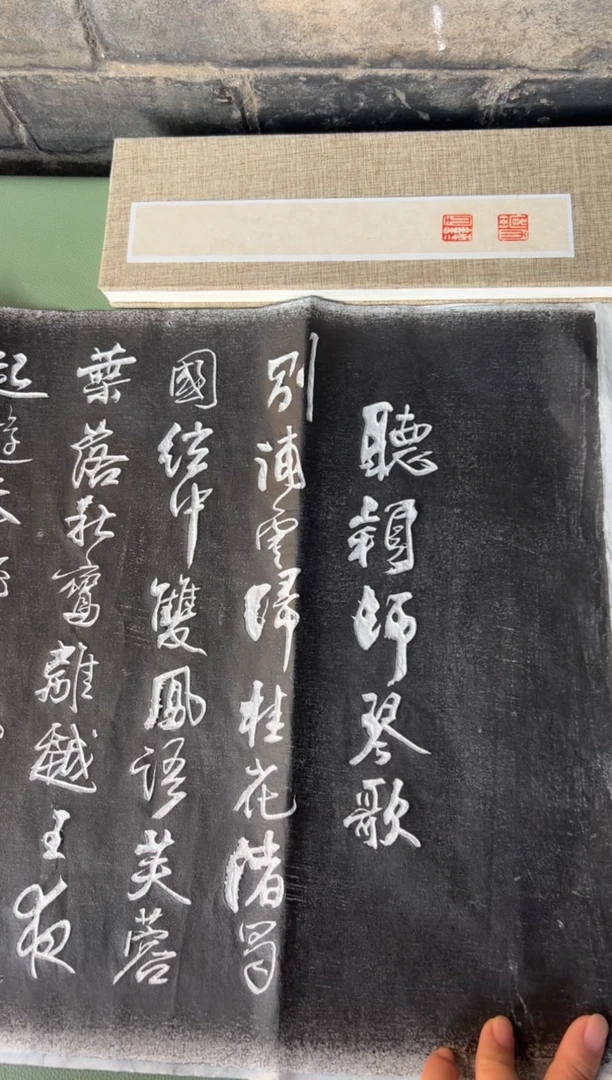 聽穎師琴歌
別浦雲歸桂花渚蜀
國絃中雙鳳語芙蓉
葉落秋鸞離越王夜
起遊天